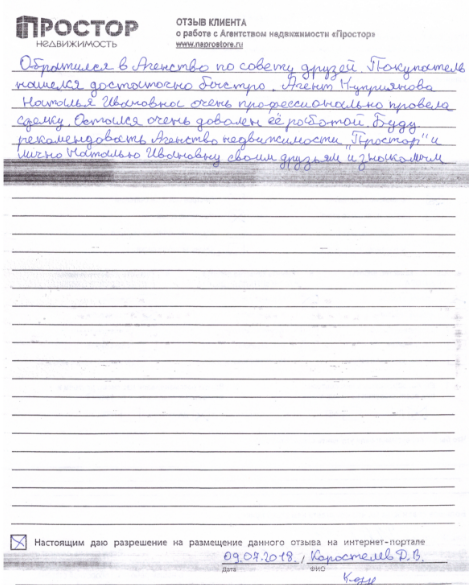 ПРОСТОР
НЕДВИЖИМОСТЬ
ОТЗЫВ КЛИЕНТА
о работе с Агентством недвижимости «Простор»
www.naprostore.ru
Обратился в Агенство по совету друзей Покупатель
нашелся достаточно быстро. Агент Куприянова
Наталья Ивановна очень профессионально провела
сделку. Остался очень доволен её работой. Буду
рекомендовать Агенство недвижимости "Простор" и
лично Наталью Ивановну своим друзьям и знакомым
Настоящим даю разрешение на размещение данного отзыва на интернет-портале
09.07.2018 / Коростелёв Д.В.
Дата ФИО